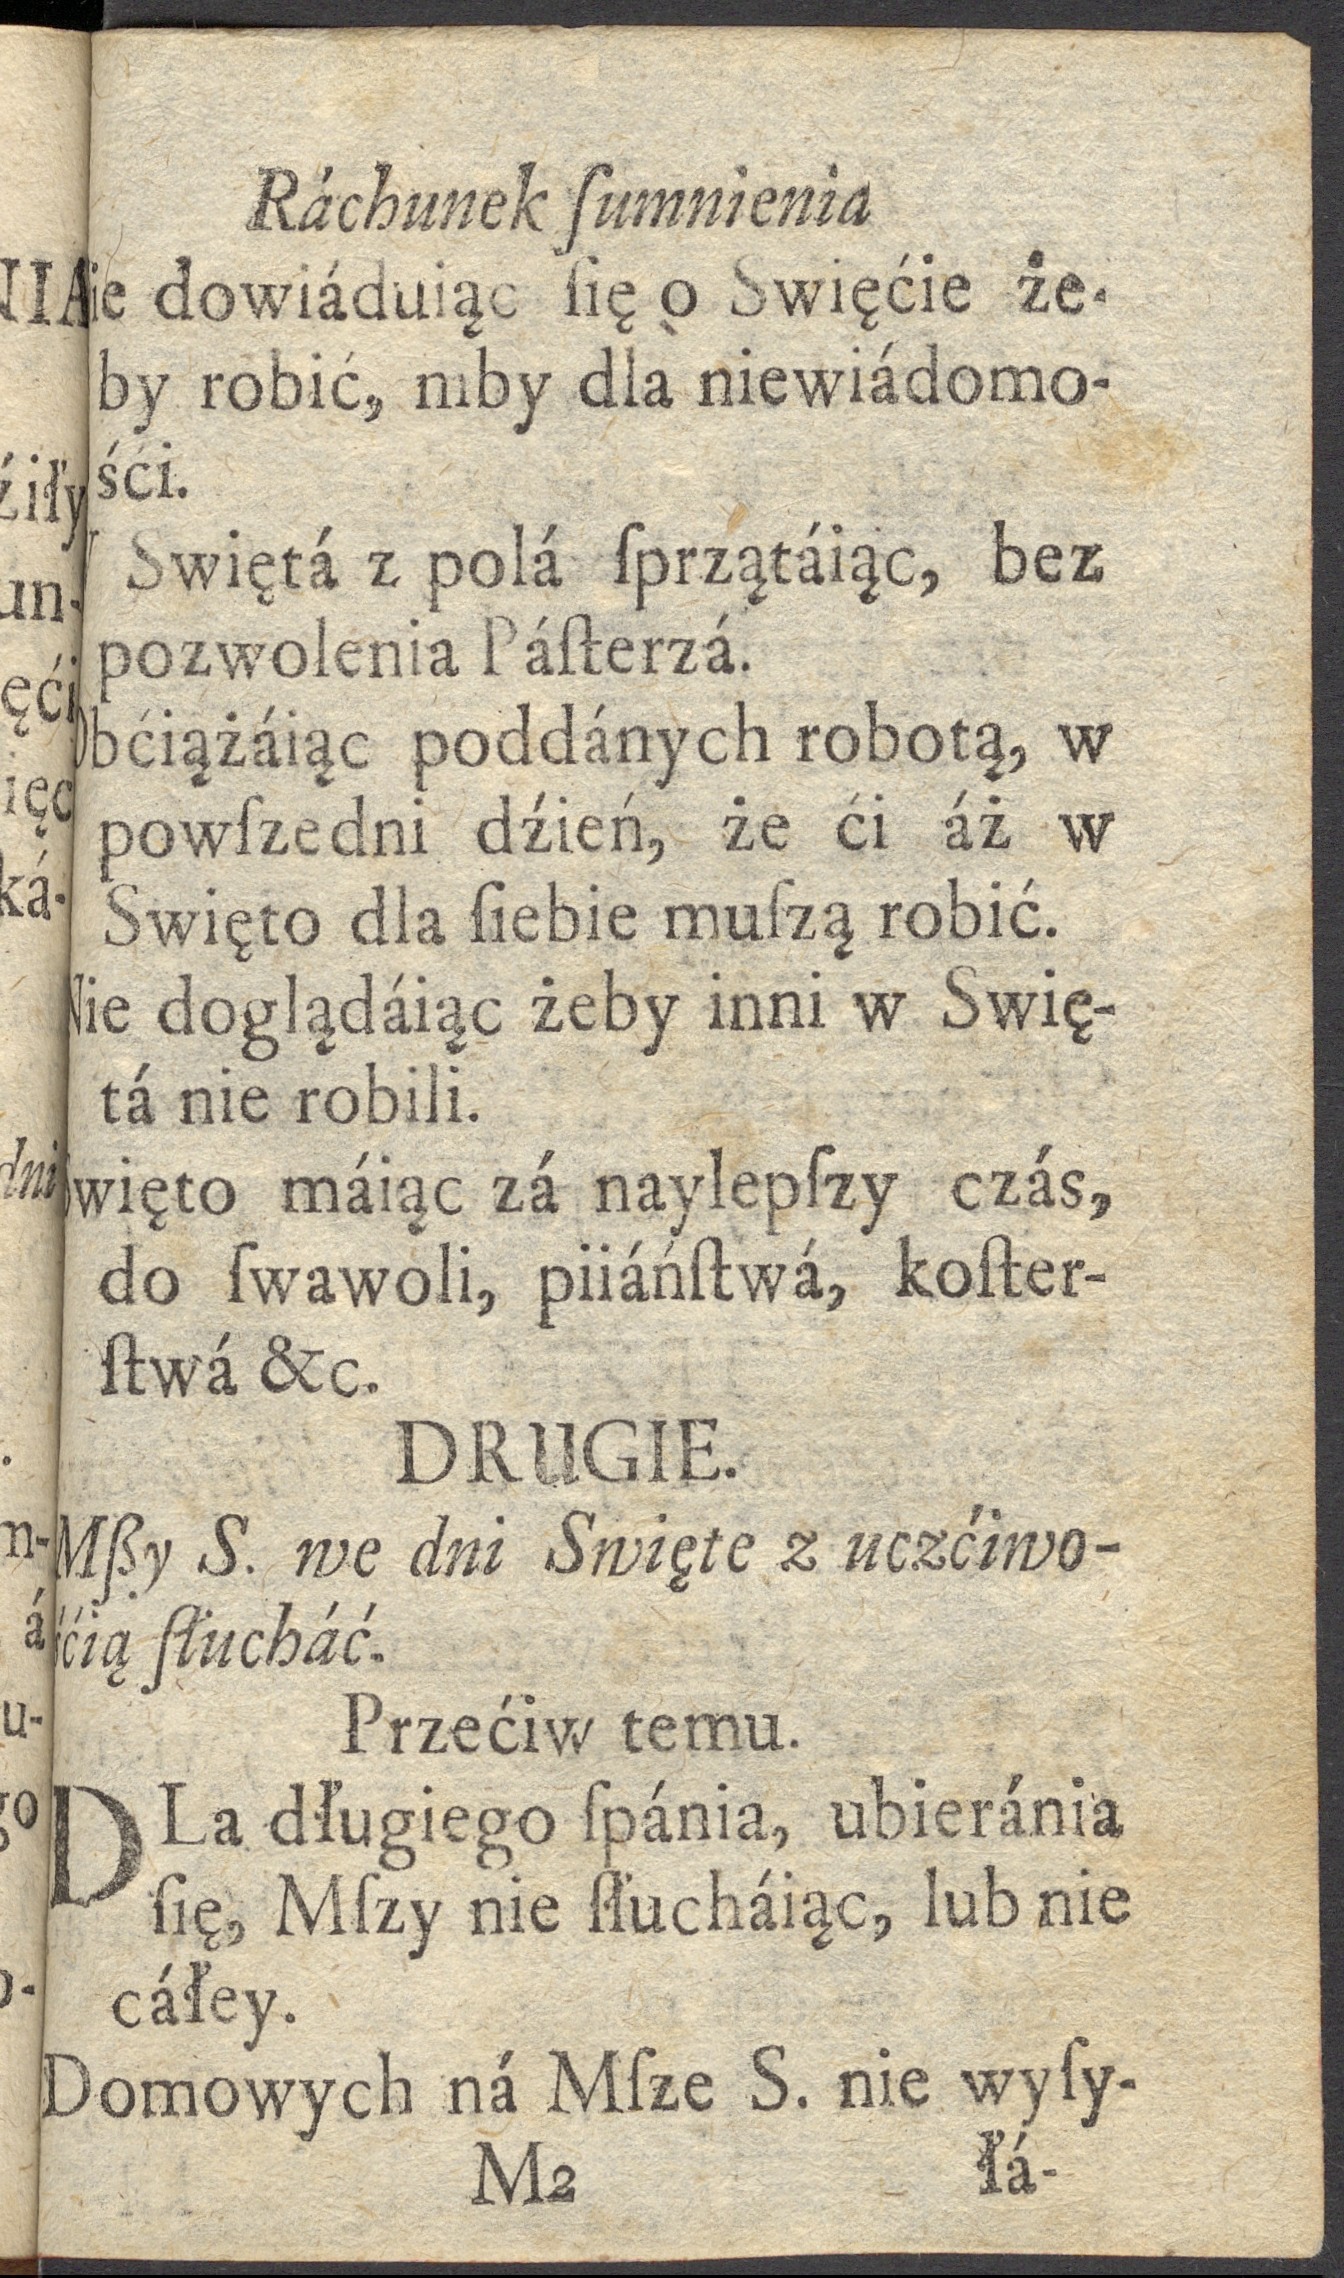 Ráchunek ſumnienia
ie dowiáduiąc ſię o Swięćie że-
by robić, niby dla niewiádomo-
śći.
Swiętá z polá ſprzątáiąc, bez
pozwolenia Páſterzá.
Obćiążáiąc poddánych robotą, w
powſzedni dźień, że ći áż w
Swięto dla ſiebie muſzą robić.
Nie doglądáiąc żeby inni w Swię-
tá nie robili.
Swięto máiąc zá naylepſzy czás,
do ſwawoli, piiáńſtwá, koſter-
ſtwá &c.
DRUGIE.
Mßy S. we dni Swięte z uczćiwo-
śćią ſłucháć.
Przećiw temu.
DLa długiego ſpánia, ubieránia
ſię, Mſzy nie ſłucháiąc, lub nie
cáłey.
Domowych ná Mſze S. nie wyſy-
M2 łá-